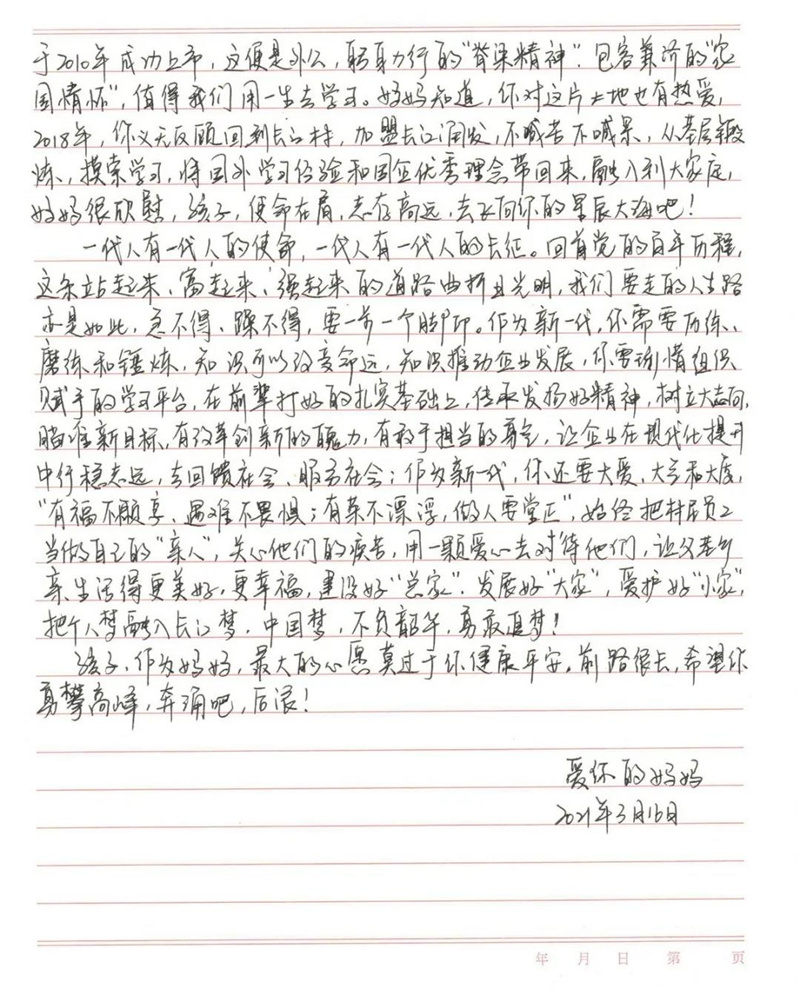 于2010年成功上市，这便是外公，躬身力行的“脊梁精神”．包容兼济的“家
国情怀”，值得我们用一生去学习。妈妈知道，你对这片土地也有热爱，
2018年，你义无反顾回到长江村，加盟长江润发，不喊苦不喊累，从基层锻
炼、摸索学习，将国外学习经验和国企优秀理念带回来，融入到大家庭，
妈妈很欣慰，孩子，使命在肩，志存高远，去飞向你的星辰大海吧！
一代人有一代人的使命，一代人有一代人的长征。回首党的百年历程，
这条站起来、富起来、强起来的道路曲折且光明，我们要走的人生路
亦是如此，急不得、躁不得，要一步一个脚印。作为新一代，你需要历练、
磨练和锤炼，知识可以改变命运，知识推动企业发展，你要珍惜组织
赋予的学习平台，在前辈打好的扎实基础上，传承发扬好精神，树立大志向，
瞄准新目标，有改革创新的魄力，有敢于担当的勇气，让企业在现代化提升
中行稳志远，去回馈社会、服务社会；作为新一代，你还要大爱、大气和大度，
“有福不願享、遇难不畏惧；有菜不漂浮，做人要堂正”，始终把村居员工
当做自己的“亲人”，关心他们的疾苦，用一颗爱心去对待他们，让父老乡
亲生活得更美好、更幸福，建设好“总家”．发展好“大家”，爱护好“小家”，
把个人梦融入长江梦．中国梦，不负韶华，勇敢追梦！
孩子，作为妈妈，最大的心愿莫过于你健康平安，前路很长，希望你
勇攀高峰，奔涌吧，后浪！
爱你的妈妈
2021年3月16日
年 月 日 第 页